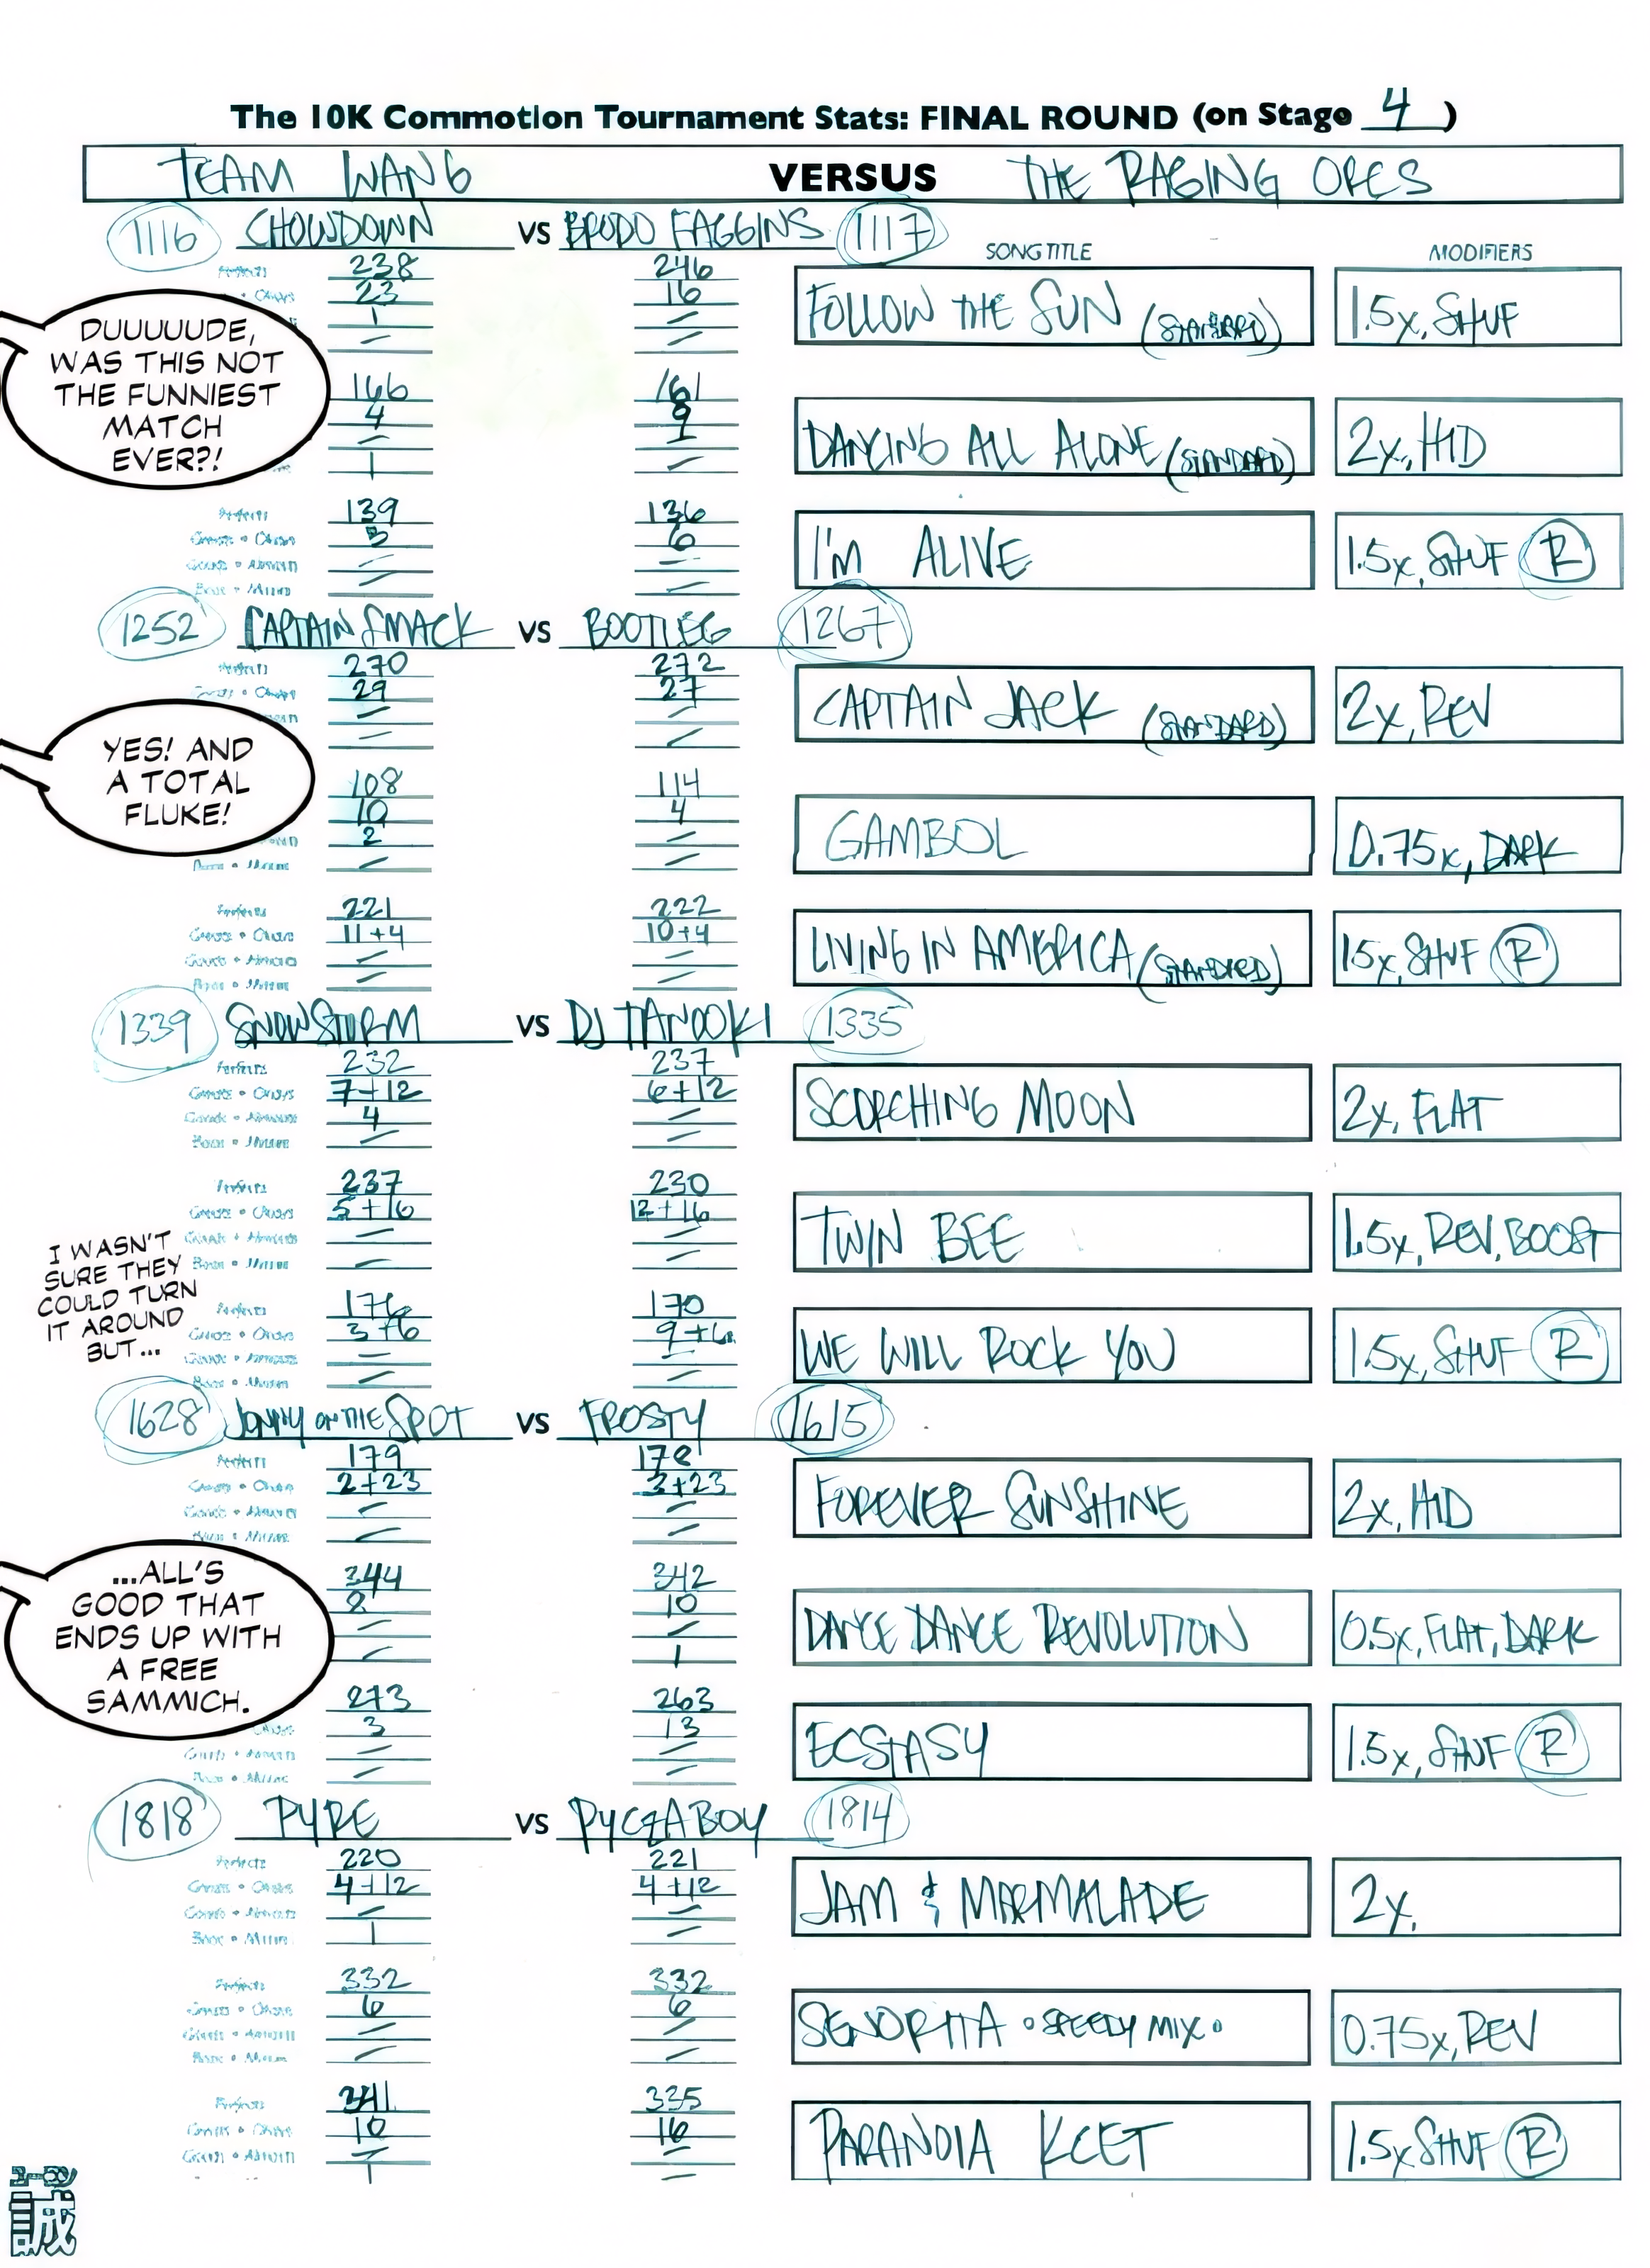 The 10K Commotion Tournament Stats: FINAL ROUND (on Stage 4)
TEAM WANG VERSUS THE RAGING ORCS
1116 CHOWDOWN VS BRODO FAGGINS 1117
SONG TITLE MODIFIERS
Perfects 238 246
23 16
FOLLOW THE SUN (STANDARD) 1.5x, SHUF
1 –
– –
DUUUUUDE,
WAS THIS NOT
THE FUNNIEST
MATCH
EVER?!
166 161
4 9
DANCING ALL ALONE (STANDARD) 2x, HID
– 1
1 –
Perfects 139 136
Greats • Okays 3 6
I'M ALIVE 1.5x, SHUF R
Goods • Almosts – –
Boos • Misses – –
1252 CAPTAIN SMACK VS BOOTLEG 1267
Perfects 270 272
Greats • Okays 29 27
CAPTAIN JACK (STANDARD) 2x, REV
– –
– –
YES! AND
A TOTAL
FLUKE!
108 114
10 4
GAMBOL 0.75x, DARK
2 –
Boos • Misses – –
Perfects 221 222
Greats • Okays 11+4 10+4
LIVING IN AMERICA (STANDARD) 1.5x, SHUF R
Goods • Almosts – –
Boos • Misses – –
1339 SNOWSTORM VS DJ TANOOKI 1335
Perfects 232 237
Greats • Okays 7+12 6+12
SCORCHING MOON 2x, FLAT
Goods • Almosts 4 –
Boos • Misses – –
Perfects 237 230
Greats • Okays 5+16 12+16
TWIN BEE 1.5x, REV, BOOST
Goods • Almosts – –
Boos • Misses – –
I WASN'T
SURE THEY
COULD TURN
IT AROUND
BUT...
Perfects 176 170
Greats • Okays 3+6 9+6
WE WILL ROCK YOU 1.5x, SHUF R
Goods • Almosts – –
Boos • Misses – –
1628 JONNY ON THE SPOT VS FROSTY 1615
Perfects 179 178
Greats • Okays 2+23 3+23
FOREVER SUNSHINE 2x, HID
Goods • Almosts – –
Boos • Misses – –
...ALL'S
GOOD THAT
ENDS UP WITH
A FREE
SAMMICH.
344 342
8 10
DANCE DANCE REVOLUTION 0.5x, FLAT, DARK
– –
– 1
273 263
Okays 3 13
ECSTASY 1.5x, SHUF R
Goods • Almosts – –
Boos • Misses – –
1818 PYRE VS PYCZABOY 1814
Perfects 220 221
Greats • Okays 4+12 4+12
JAM & MARMALADE 2x,
Goods • Almosts – –
Boos • Misses 1 –
Perfects 332 332
Greats • Okays 6 6
SENORITA • SPEEDY MIX • 0.75x, REV
Goods • Almosts – –
Boos • Misses – –
Perfects 341 335
Greats • Okays 10 16
PARANOIA KCET 1.5x SHUF R
Goods • Almosts – –
1 –
誠